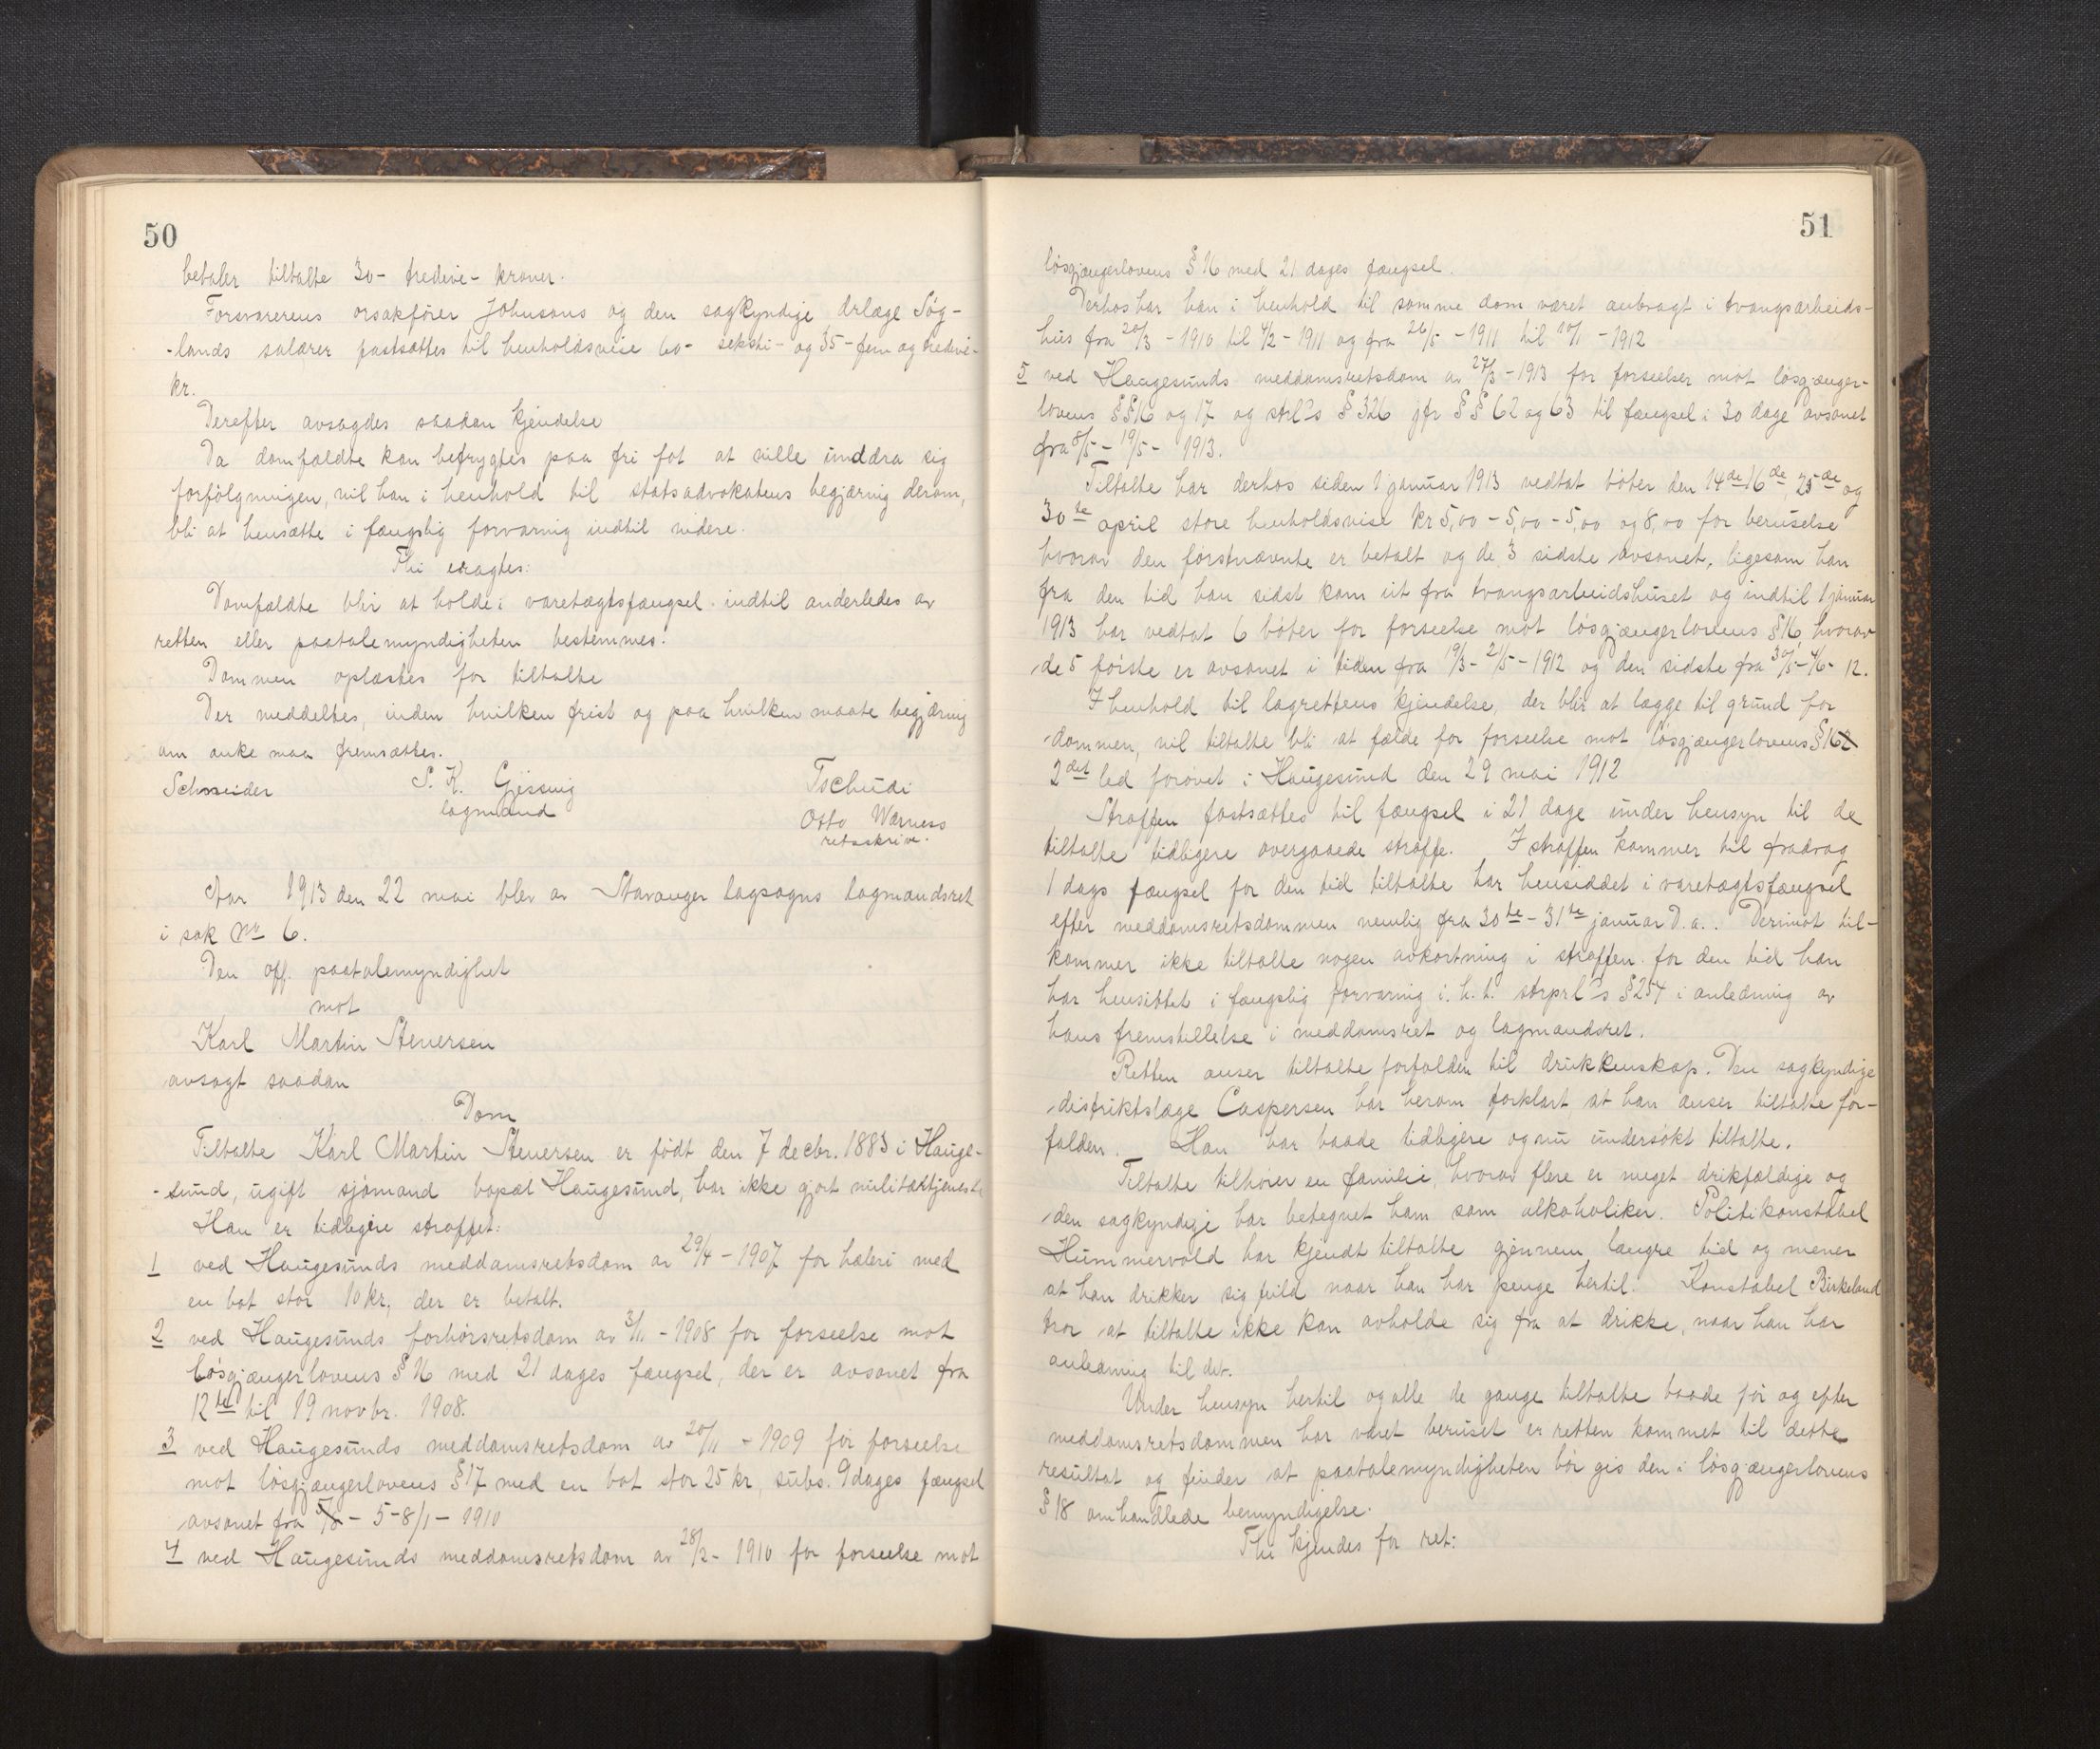 50
betaler tiltalte 30- tredive- kroner.
Forsvarerens orsakfører Johnsons og den sagkyndige drlæge Søg-
-lands salærer fastsættes til henholdsvise 60- seksti- og 35- fem og tredive-
kr.
Derefter avsagdes saadan kjendelse
Da domfældte kan befrygtes paa fri fot at ville unddra sig
forfølgningen, vil han i henhold til statsadvokatens begjæring derom,
bli at hensætte i fængslig forvaring indtil videre.
Thi eragtes:
Domfældte blir at holde i varetægtsfængsel indtil anderledes av
retten eller paatalemyndigheten bestemmes.
Dommen oplæstes for tiltalte
Der meddeltes, inden hvilken frist og paa hvilken maate begjæring
om anke maa fremsættes.
Schneider S. K. Gjessing Tschudi
lagmand Otto Warness
retsskriv.
Aar 1913 den 22 mai blev av Stavanger lagsogns lagmandsret
i sak No 6.
Den off. paatalemyndighet
mot
Karl Martin Steversen
avsagt saadan
Dom
Tiltalte Karl Martin Steversen er født den 7 decbr. 1883 i Hauge-
-sund, ugift sjømand bopæl Haugesund, har ikke gjort militærtjeneste
Han er tidligere straffet:
1 ved Haugesunds meddomsretsdom av 29/4 - 1907 for hæleri med
en bot stor 10 kr, der er betalt.
2 ved Haugesunds forhørsretsdom av 3/11 - 1908 for forseelse mot
løsgjængerlovens § 16 med 21 dages fængsel, der er avsonet fra
12te til 19 novbr. 1908.
3 ved Haugesunds meddomsretsdom av 20/11 - 1909 for forseelse
mot løsgjængerlovens § 17 med en bot stor 25 kr, subs. 9 dages fængsel
avsonet fra 5/8 - 5-8/1 - 1910
4 ved Haugesunds meddomsretsdom av 28/2 - 1910 for forseelse mot
51
løsgjængerlovens § 16 med 21 dages fængsel.
Derhos har han i henhold til samme dom været anbragt i tvangsarbeids-
hus fra 20/3 - 1910 til 4/2 - 1911 og fra 26/5 - 1911 til 10/1 - 1912
5 ved Haugesunds meddomsretsdom av 27/3 - 1913 for forseelser mot løsgjænger-
lovens §§ 16 og 17 og strl's § 326 jfr §§ 62 og 63 til fængsel i 30 dage avsonet
fra 8/5 - 19/5 - 1913.
Tiltalte har derhos siden 1 januar 1913 vedtat bøter den 14de 16de, 25de og
30te april store henholdsvise kr 5,00 - 5,00 - 5,00 og 8,00 for beruselse
hvorav den førstnævnte er betalt og de 3 sidste avsonet, ligesom han
fra den tid han sidst kom ut fra tvangsarbeidshuset og indtil 1 januar
1913 har vedtat 6 bøter for forseelse mot løsgjængerlovens § 16, hvorav
de 5 første er avsonet i tiden fra 19/3 - 21/5 - 1912 og den sidste fra 30/5 - 4/6 - 12.
I henhold til lagrettens kjendelse, der blir at lægge til grund for
dommen, vil tiltalte bli at fælde for forseelse mot løsgjængerlovens § 16
2det led forøvet i Haugesund den 29 mai 1912
Straffen fastsættes til fængsel i 21 dage under hensyn til de
tiltalte tidligere overgaaede straffe. I straffen kommer til fradrag
1 dags fængsel for den tid tiltalte har hensiddet i varetægtsfængsel
efter meddomsretsdommen nemlig fra 30te - 31te januar d. a.. Derimot til-
kommer ikke tiltalte nogen avkortning i straffen for den tid han
har hensittet i fængslig forvaring i. h. t. strprl's § 254 i anledning av
hans fremstillelse i meddomsret og lagmandsret.
Retten anser tiltalte forfalden til drukkenskap. Den sagkyndige
distriktslæge Caspersen har herom forklart at han anser tiltalte for-
falden. Han har baade tidligere og nu undersøkt tiltalte.
Tiltalte tilhører en familie, hvorav flere er meget drikfældige og
den sagkyndige har betegnet ham som alkoholiker. Politikonstabel
Hummervold har kjendt tiltalte gjennem længre tid og mener
at han drikker sig fuld naar han har penge hertil. Konstabel Birkeland
tror at tiltalte ikke kan avholde sig fra at drikke, naar han har
anledning til det.
Under hensyn hertil og alle de gange tiltalte baade før og efter
meddomsretsdommen har været beruset er retten kommet til dette
resultat og finder at paatalemyndigheten bør gis den i løsgjængerlovens
§ 18 omhandlede bemyndigelse.
Thi kjendes for ret: